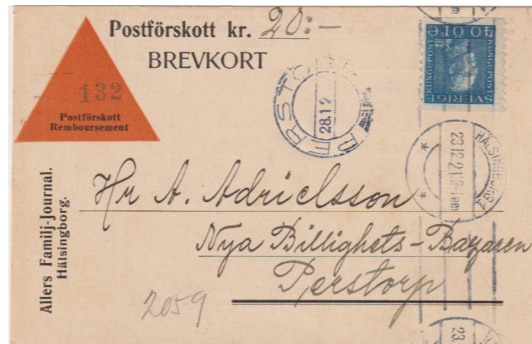 Postförskott kr. 20:-
BREVKORT
132
Postförskott
Remboursement
40 ÖRE
SVERIGE
PERSTORP
28.12
HÄLSINGBORG 1
23.12.21.12-1 em
Allers Familj-Journal.
Hälsingborg.
Hr A. Adrielsson
Nya Billighets-Bazaren
Perstorp
2059
23.